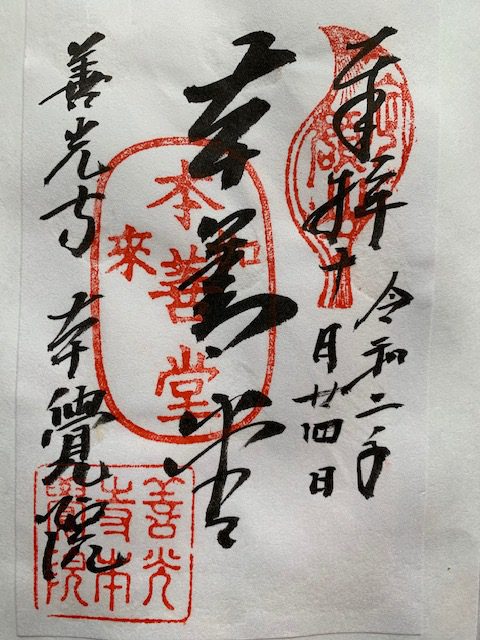 奉拝
令和二年
十月廿四日
本善堂
本善堂
来
和
善光寺 本覺院
善光寺本覺院